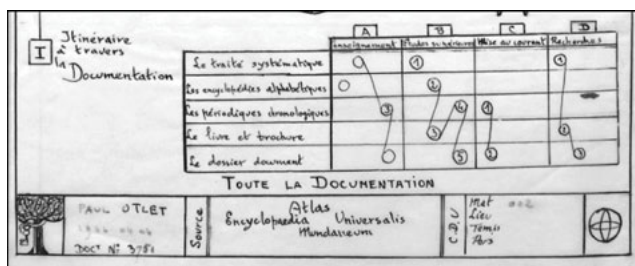 I
Itinéraire
à travers
la
Documentation
A B C D
Enseignement Études supérieures Mise au courant Recherches
Le traité systématique ① ①
Les encyclopédies alphabétiques ②
Les périodiques chronologiques ③ ① 
Le livre et brochure ③ ②
Le dossier document ⑤ ② ③
TOUTE LA DOCUMENTATION
PAUL OTLET
DOCt No 3781
Source
Atlas
Encyclopaedia Universalis
Mundaneum
C.D.U
Mat 002
Lieu
Temps